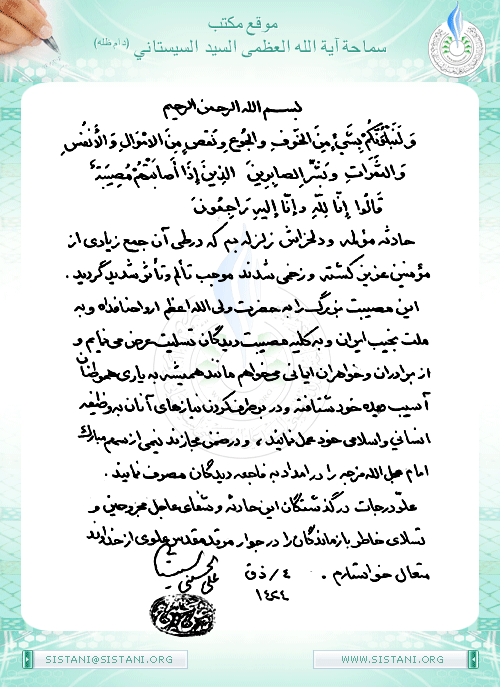 موقع مكتب
سماحة آية الله العظمى السيد السيستاني (دام ظله)
بسم الله الرحمن الرحيم
وَلَنَبْلُوَنَّكُمْ بِشَيْءٍ مِنَ الْخَوْفِ وَالْجُوعِ وَنَقْصٍ مِنَ الْأَمْوَالِ وَالْأَنْفُسِ
وَالثَّمَرَاتِ وَبَشِّرِ الصَّابِرِينَ الَّذِينَ إِذَا أَصَابَتْهُمْ مُصِيبَةٌ
قَالُوا إِنَّا لِلَّهِ وَإِنَّا إِلَيْهِ رَاجِعُونَ
حادثه مؤلمه و دلخراش زلزله بم كه در طى آن جمع زيادى از
مؤمنين عزيز كشته و زخمى شدند موجب تألم و تأثر شديد گرديد .
اين مصيبت بزرگ را به حضرت ولى الله اعظم ارواحنا فداه و به
ملت نجيب ايران و به كليه مصيبت ديدگان تسليت عرض مى نمايم و
از برادران و خواهران ايمانى مى خواهم مانند هميشه به يارى هموطنان
آسيب ديده خود شتافته و در برطرف كردن نيازهاى آنان به وظيفه
انسانى و اسلامى خود عمل نمايند ، و در ضمن مجازند نيمى از سهم مبارك
امام عجل الله فرجه را در امداد به فاجعه ديدگان مصرف نمايند .
علو درجات درگذشتگان اين حادثه و شفاى عاجل مجروحين و
تسلاى خاطر بازماندگان را در جوار مرقد مقدس علوى از خداوند
متعال خواستارم . ٤ / ذق
١٤٢٤
علي الحسيني السيستاني
SISTANI@SISTANI.ORG
WWW.SISTANI.ORG